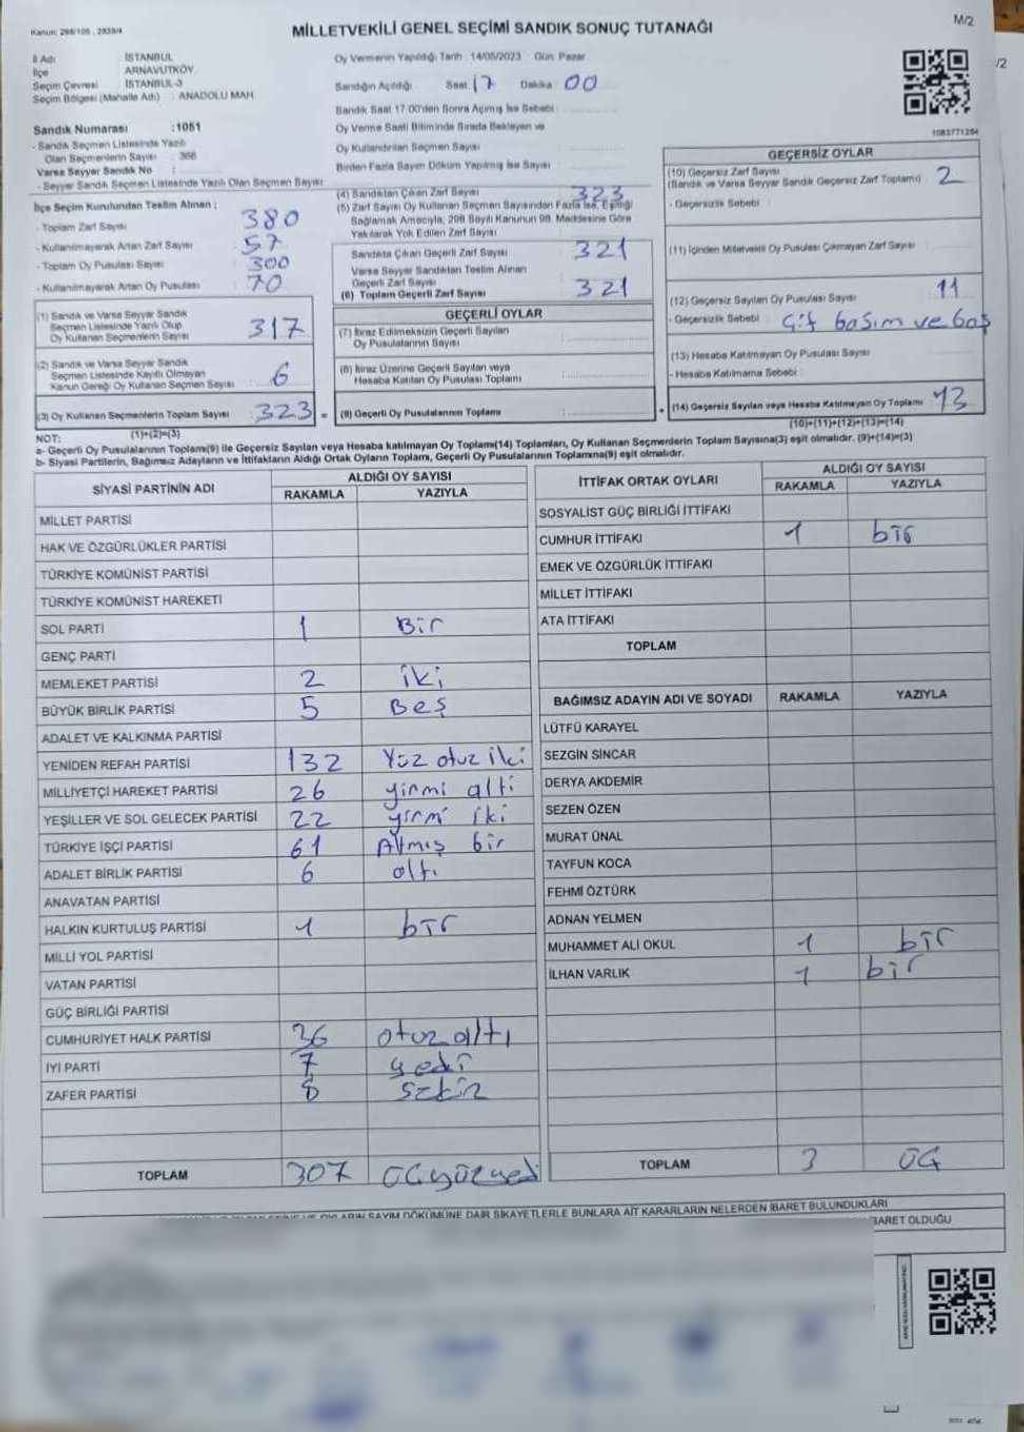 Kanun: 298/105 , 2839/4
MİLLETVEKİLİ GENEL SEÇİMİ SANDIK SONUÇ TUTANAĞI
M/2
/2
İl Adı : İSTANBUL
İlçe : ARNAVUTKÖY
Seçim Çevresi : İSTANBUL-3
Seçim Bölgesi (Mahalle Adı) : ANADOLU MAH
Oy Vermenin Yapıldığı Tarih : 14/05/2023 Gün: Pazar
Sandığın Açıldığı Saat 17 Dakika 00
Sandık Saat 17.00'den Sonra Açılmış İse Sebebi :
Oy Verme Saati Bitiminde Sırada Bekleyen ve
Oy Kullandırılan Seçmen Sayısı
Birden Fazla Sayım Döküm Yapılmış İse Sayısı
Sandık Numarası :1051
- Sandık Seçmen Listesinde Yazılı
Olan Seçmenlerin Sayısı : 366
Varsa Seyyar Sandık No :
- Seyyar Sandık Seçmen Listesinde Yazılı Olan Seçmen Sayısı
İlçe Seçim Kurulundan Teslim Alınan ;
- Toplam Zarf Sayısı : 380
- Kullanılmayarak Artan Zarf Sayısı : 57
- Toplam Oy Pusulası Sayısı : 300
- Kullanılmayarak Artan Oy Pusulası : 70
(1) Sandık ve Varsa Seyyar Sandık
Seçmen Listesinde Yazılı Olup
Oy Kullanan Seçmenlerin Sayısı : 317
(2) Sandık ve Varsa Seyyar Sandık
Seçmen Listesinde Kayıtlı Olmayan
Kanun Gereği Oy Kullanan Seçmen Sayısı : 6
(3) Oy Kullanan Seçmenlerin Toplam Sayısı : 323 =
(1)+(2)=(3)
(4) Sandıktan Çıkan Zarf Sayısı 323
(5) Zarf Sayısı Oy Kullanan Seçmen Sayısından Fazla İse, Eşitliği
Sağlamak Amacıyla, 298 Sayılı Kanunun 98. Maddesine Göre
Yakılarak Yok Edilen Zarf Sayısı
Sandıkta Çıkan Geçerli Zarf Sayısı 321
Varsa Seyyar Sandıktan Teslim Alınan
Geçerli Zarf Sayısı
(6) Toplam Geçerli Zarf Sayısı : 321
GEÇERLİ OYLAR
(7) İtiraz Edilmeksizin Geçerli Sayılan
Oy Pusulalarının Sayısı
(8) İtiraz Üzerine Geçerli Sayılan veya
Hesaba Katılan Oy Pusulası Toplamı
(9) Geçerli Oy Pusulalarının Toplamı : +
1083771264
GEÇERSİZ OYLAR
(10) Geçersiz Zarf Sayısı
(Sandık ve Varsa Seyyar Sandık Geçersiz Zarf Toplamı) 2
- Geçersizlik Sebebi :
(11) İçinden Milletvekili Oy Pusulası Çıkmayan Zarf Sayısı
(12) Geçersiz Sayılan Oy Pusulası Sayısı 11
- Geçersizlik Sebebi : Çif basım ve boş
(13) Hesaba Katılmayan Oy Pusulası Sayısı
- Hesaba Katılmama Sebebi :
(14) Geçersiz Sayılan veya Hesaba Katılmayan Oy Toplamı 13
(10)+(11)+(12)+(13)=(14)
NOT:
a- Geçerli Oy Pusulalarının Toplamı(9) ile Geçersiz Sayılan veya Hesaba katılmayan Oy Toplamı(14) Toplamları, Oy Kullanan Seçmenlerin Toplam Sayısına(3) eşit olmalıdır. (9)+(14)=(3)
b- Siyasi Partilerin, Bağımsız Adayların ve İttifakların Aldığı Ortak Oyların Toplamı, Geçerli Oy Pusulalarının Toplamına(9) eşit olmalıdır.
SİYASİ PARTİNİN ADI ALDIĞI OY SAYISI
RAKAMLA YAZIYLA
MİLLET PARTİSİ
HAK VE ÖZGÜRLÜKLER PARTİSİ
TÜRKİYE KOMÜNİST PARTİSİ
TÜRKİYE KOMÜNİST HAREKETİ
SOL PARTİ 1 Bir
GENÇ PARTİ
MEMLEKET PARTİSİ 2 iki
BÜYÜK BİRLİK PARTİSİ 5 Beş
ADALET VE KALKINMA PARTİSİ
YENİDEN REFAH PARTİSİ 132 Yüz otuz iki
MİLLİYETÇİ HAREKET PARTİSİ 26 yirmi alti
YEŞİLLER VE SOL GELECEK PARTİSİ 22 yirmi iki
TÜRKİYE İŞÇİ PARTİSİ 61 Atmış bir
ADALET BİRLİK PARTİSİ 6 altı
ANAVATAN PARTİSİ
HALKIN KURTULUŞ PARTİSİ 1 bir
MİLLİ YOL PARTİSİ
VATAN PARTİSİ
GÜÇ BİRLİĞİ PARTİSİ
CUMHURİYET HALK PARTİSİ 36 otuz altı
İYİ PARTİ 7 yedi
ZAFER PARTİSİ 8 sekiz
TOPLAM 307 üçyüzyedi
İTTİFAK ORTAK OYLARI ALDIĞI OY SAYISI
RAKAMLA YAZIYLA
SOSYALİST GÜÇ BİRLİĞİ İTTİFAKI
CUMHUR İTTİFAKI 1 bir
EMEK VE ÖZGÜRLÜK İTTİFAKI
MİLLET İTTİFAKI
ATA İTTİFAKI
TOPLAM
BAĞIMSIZ ADAYIN ADI VE SOYADI RAKAMLA YAZIYLA
LÜTFÜ KARAYEL
SEZGİN SİNCAR
DERYA AKDEMİR
SEZEN ÖZEN
MURAT ÜNAL
TAYFUN KOCA
FEHMİ ÖZTÜRK
ADNAN YELMEN
MUHAMMET ALİ OKUL 1 bir
İLHAN VARLIK 1 bir
TOPLAM 3 üç
SAYIM DÖKÜMÜNE DAİR ŞİKAYETLERLE BUNLARA AİT KARARLARIN NELERDEN İBARET BULUNDUKLARI
BARET OLDUĞU